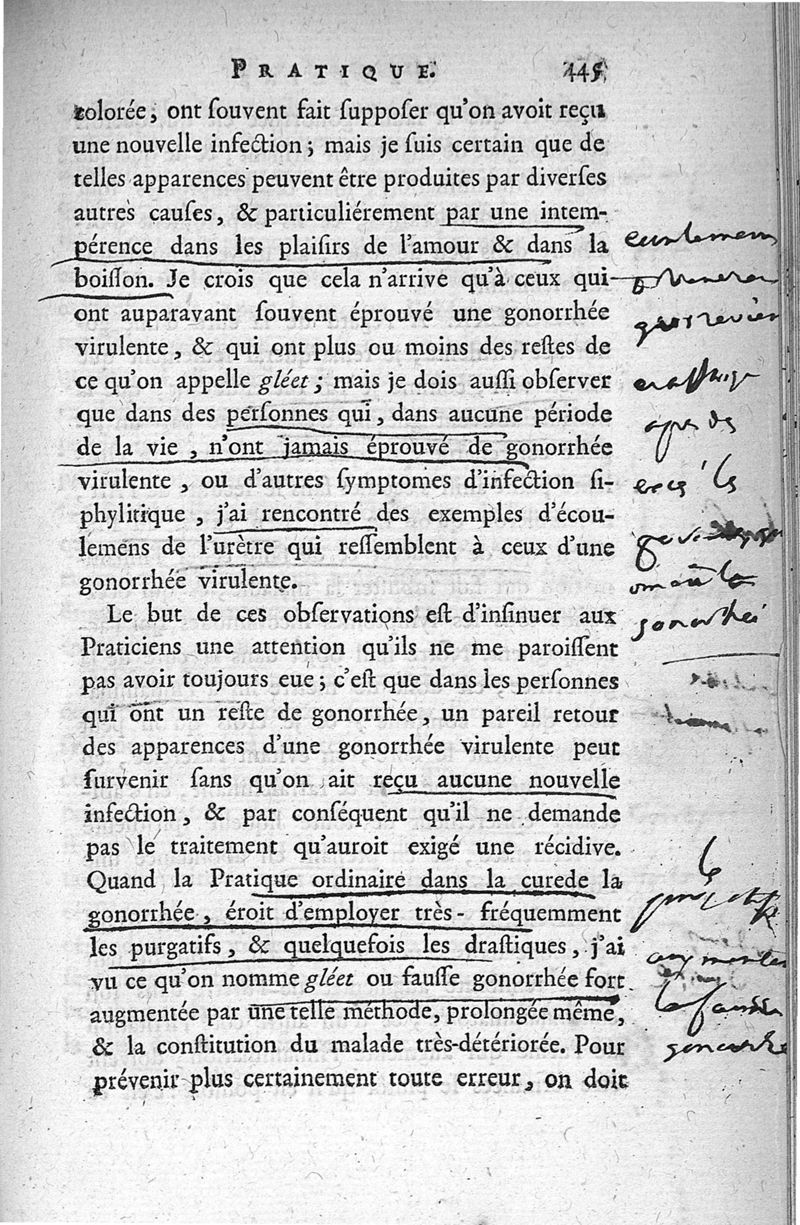 PRATIQUE. 445
colorée, ont ſouvent fait ſuppoſer qu'on avoit reçu
une nouvelle infection ; mais je ſuis certain que de
telles apparences peuvent être produites par diverſes
autres cauſes, & particuliérement par une intem-
pérence dans les plaiſirs de l'amour & dans la
boiſſon. Je crois que cela n'arrive qu'à ceux qui
ont auparavant ſouvent éprouvé une gonorrhée
virulente, & qui ont plus ou moins des reſtes de
ce qu'on appelle gléet ; mais je dois auſſi obſerver
que dans des perſonnes qui, dans aucune période
de la vie, n'ont jamais éprouvé de gonorrhée
virulente, ou d'autres ſymptomes d'infection ſi-
phylitique, j'ai rencontré des exemples d'écou-
lemens de l'urètre qui reſſemblent à ceux d'une
gonorrhée virulente.
Le but de ces obſervations eſt d'inſinuer aux
Praticiens une attention qu'ils ne me paroiſſent
pas avoir toujours eue ; c'eſt que dans les perſonnes
qui ont un reſte de gonorrhée, un pareil retour
des apparences d'une gonorrhée virulente peut
ſurvenir sans qu'on ait reçu aucune nouvelle
infection, & par conſéquent qu'il ne demande
pas le traitement qu'auroit exigé une récidive.
Quand la Pratique ordinaire dans la curede la
gonorrhée, étoit d'employer très-fréquemment
les purgatifs, & quelquefois les draſtiques, j'ai
vu ce qu'on nomme gléet ou fauſſe gonorrhée fort
augmentée par une telle méthode, prolongée même,
& la conſtitution du malade très-détériorée. Pour
prévenir plus certainement toute erreur, on doit
apres des
gonorrhée
le
augmenter
la fausse
gonorrhe